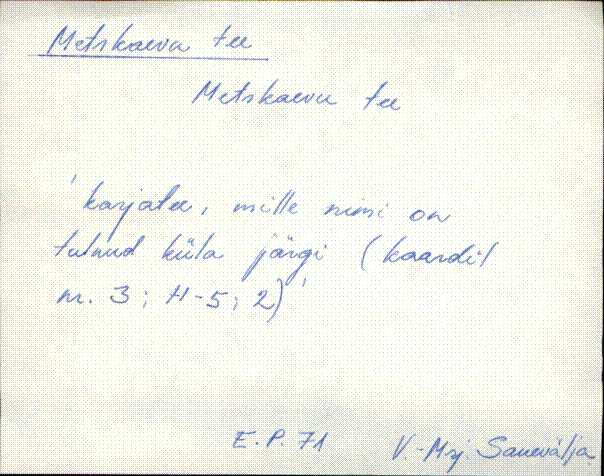 Metskaevu tee
Metskaevu tee
'karjatee, mille nimi on
tulnud küla järgi (kaardil
nr. 3; H-5; 2)'
E.P. 71
V-Mrj. Sanevälja